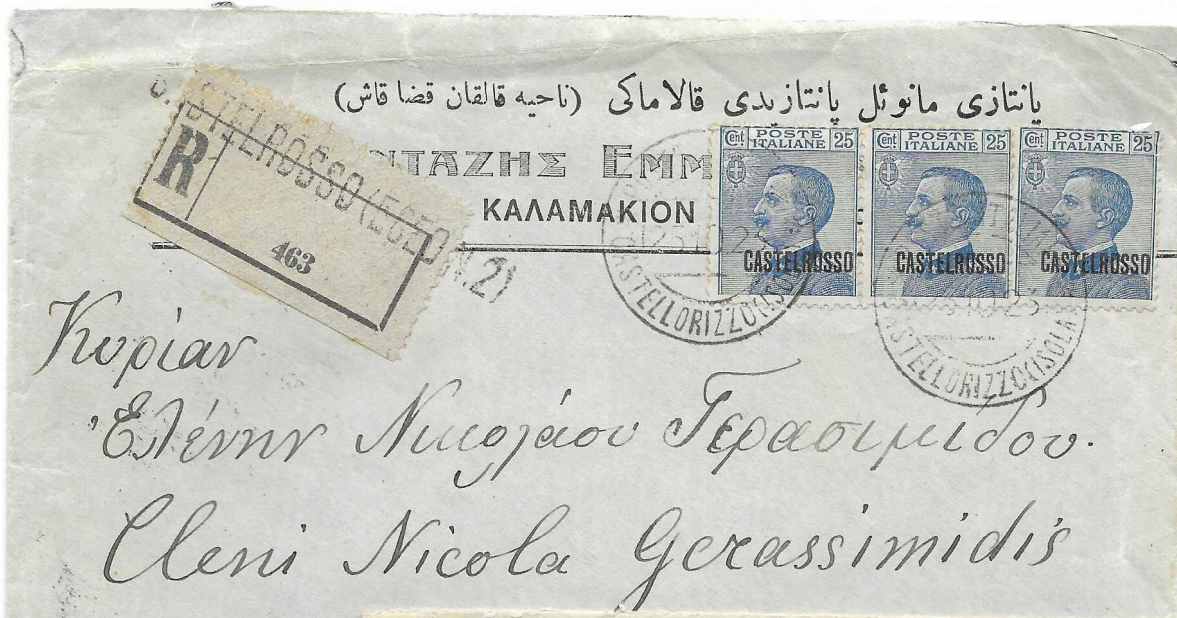 پانتازی مانوئل پانتازیدی قالاماكی (ناحیه قالقان قضا قاش)
ΝΤΑΖΗΣ ΕΜΜ
ΚΑΛΑΜΑΚΙΟΝ
CASTELROSSO (EGEO N.2)
R
463
Cent POSTE ITALIANE 25
CASTELROSSO
Cent POSTE ITALIANE 25
CASTELROSSO
Cent POSTE ITALIANE 25
CASTELROSSO
CASTELLORIZZO (ISOLA
CASTELLORIZZO (ISOLA
Κυρίαν
Ἑλένην Νικολάου Γερασιμίδου.
Eleni Nicola Gerassimidis